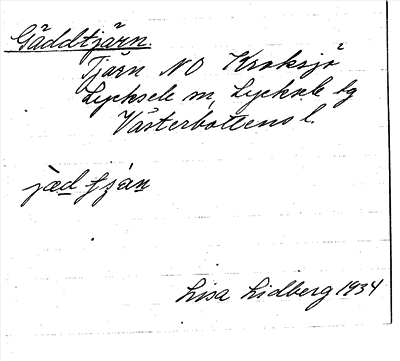 Gäddtjärn.
Tjärn NO Kroksjö
Lycksele m, Lycksele lg
Västerbottens l.
jæd tjạ̈n
Lisa Lidberg 1934